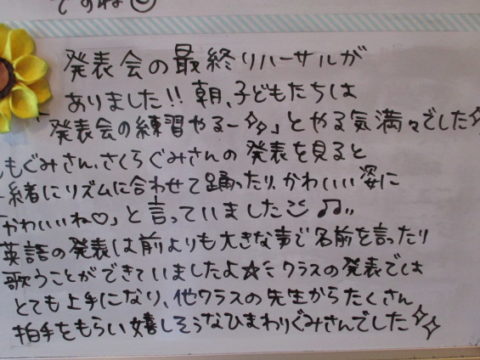 ですね☺
発表会の最終リハーサルが
ありました!! 朝、子どもたちは
「発表会の練習やるー✨」とやる気満々でした✨
ももぐみさん、さくらぐみさんの発表を見ると
一緒にリズムに合わせて踊ったり、かわいい姿に
「かわいいね♡」と言っていました☺♫〃
英語の発表は前よりも大きな声で名前を言ったり
歌うことができていましたよ☆ミ クラスの発表では
とても上手になり、他クラスの先生からたくさん
拍手をもらい嬉しそうなひまわりぐみさんでした✨